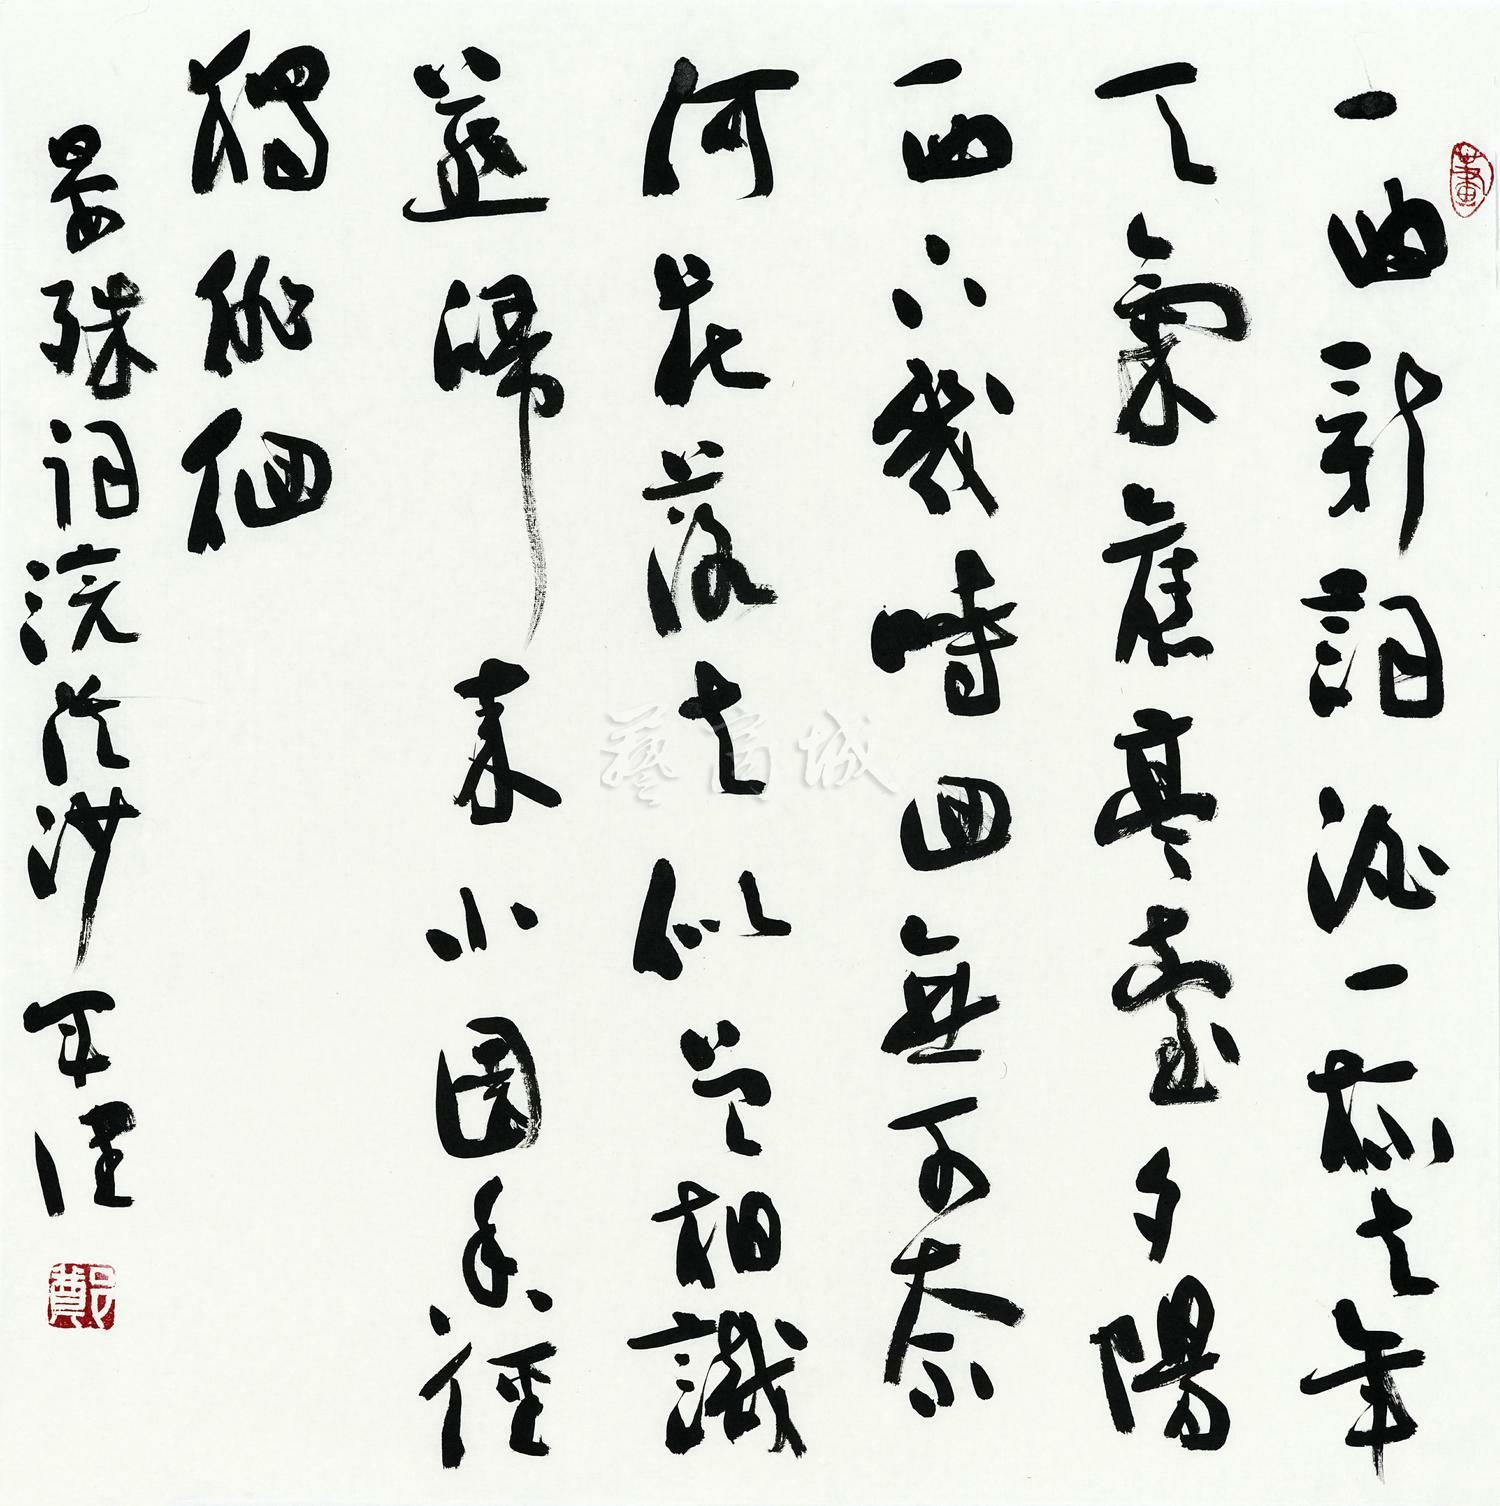 一曲新詞酒一杯去年
天氣舊亭臺夕陽
西下幾時回無可奈
何花落去似曾相識
燕歸來小園香徑
獨徘徊
晏殊詞浣溪沙
藝商城